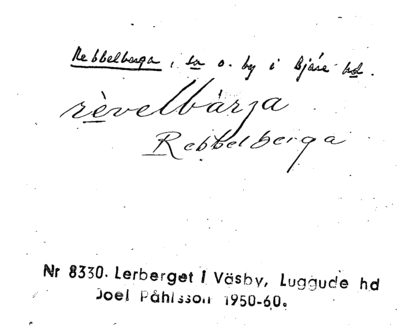 Rebbelberga, sn o. by i Bjäre hd.
rèvelbàrja
Rebbelberga
Nr 8330. Lerberget i Väsby, Luggude hd
Joel Påhlsson 1950-60.